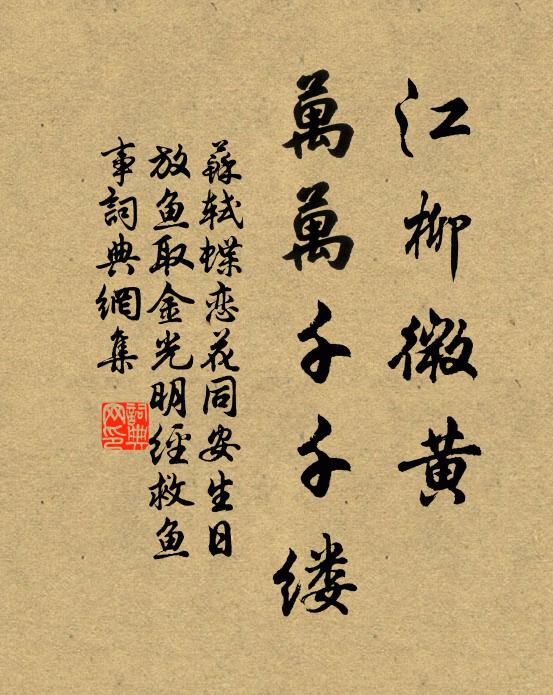 江柳微黄
萬萬千千缕
蘇軾蝶恋花同安生日
放鱼取金光明經救鱼
事詞典網集
詞典
网印